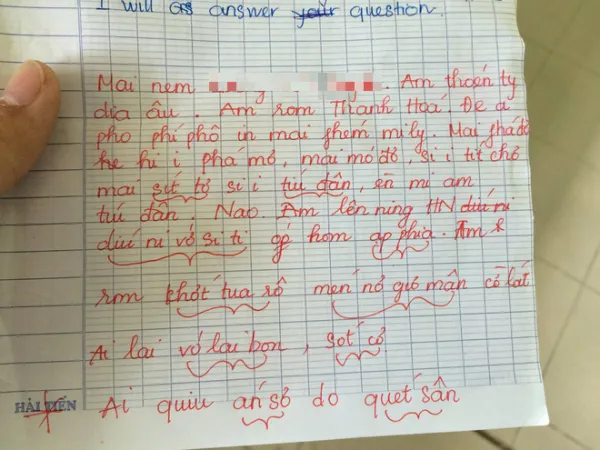 I will as answer your question.
Mai nem . Am thoén ty
dia âu. Am rom Thanh Hoá Đe a
pho phí phô in mai ghém mily. Mai phá đờ
he hi i phá mó, mai mó đỏ, si i tít chó
mai sít tờ si i tuí dân, èn mi am
tuí dân. Nao. Am lên ning HN điú ni
điú ni vớ si ti gé hom ap phia. Am
rom phớt tua rô men nỏ gió mận cò lát
Ai lai vớ lai bon, sot cỏ
HẢI TIẾN
Ai quiu án sò do quet sân